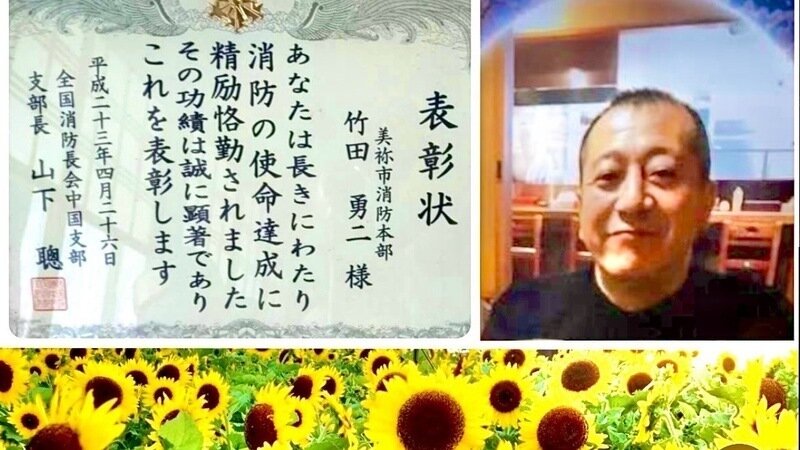 表彰状
美祢市消防本部
竹田 勇二 様
あなたは長きにわたり
消防の使命達成に
精励恪勤されました
その功績は誠に顕著であり
これを表彰します
平成二十三年四月二十六日
全国消防長会中国支部
支部長 山下 聰